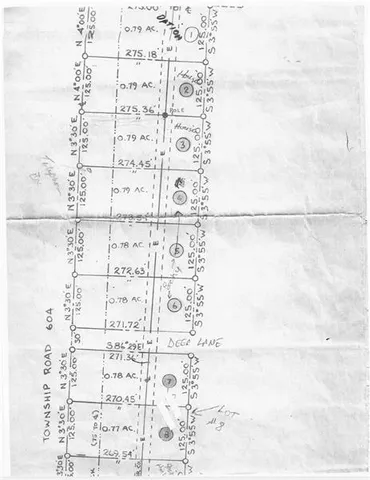 273.00
OPTION
N 4°00' E
125.00'
0.79 AC.
1
125.00'
S 3°55' W
275.18
E
House
N 4°00' E
125.00'
0.79 AC.
2
125.00'
S 3°55' W
275.36
POLE
House
N 3°30' E
125.00'
0.79 AC.
3
125.00'
S 3°55' W
274.45'
E
N 3°30' E
125.00'
0.79 AC.
4
125.00'
S 3°55' W
N 3°30' E
125.00'
0.78 AC.
E
5
125.00'
S 3°55' W
272.63
N 3°30' E
125.00'
0.78 AC.
6
125.00'
S 3°55' W
271.72'
30'
S 86°29' E
DEER LANE
271.36'
TOWNSHIP ROAD 604
N 3°30' E
125.00'
0.78 AC.
7
125.00'
S 3°55' W
270.45'
LOT
#8
N 3°30' E
125.00'
0.77 AC.
E
8
125.00'
S 3°55' W
269.54'